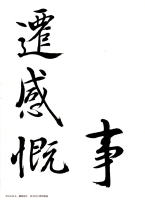 事
遷感慨